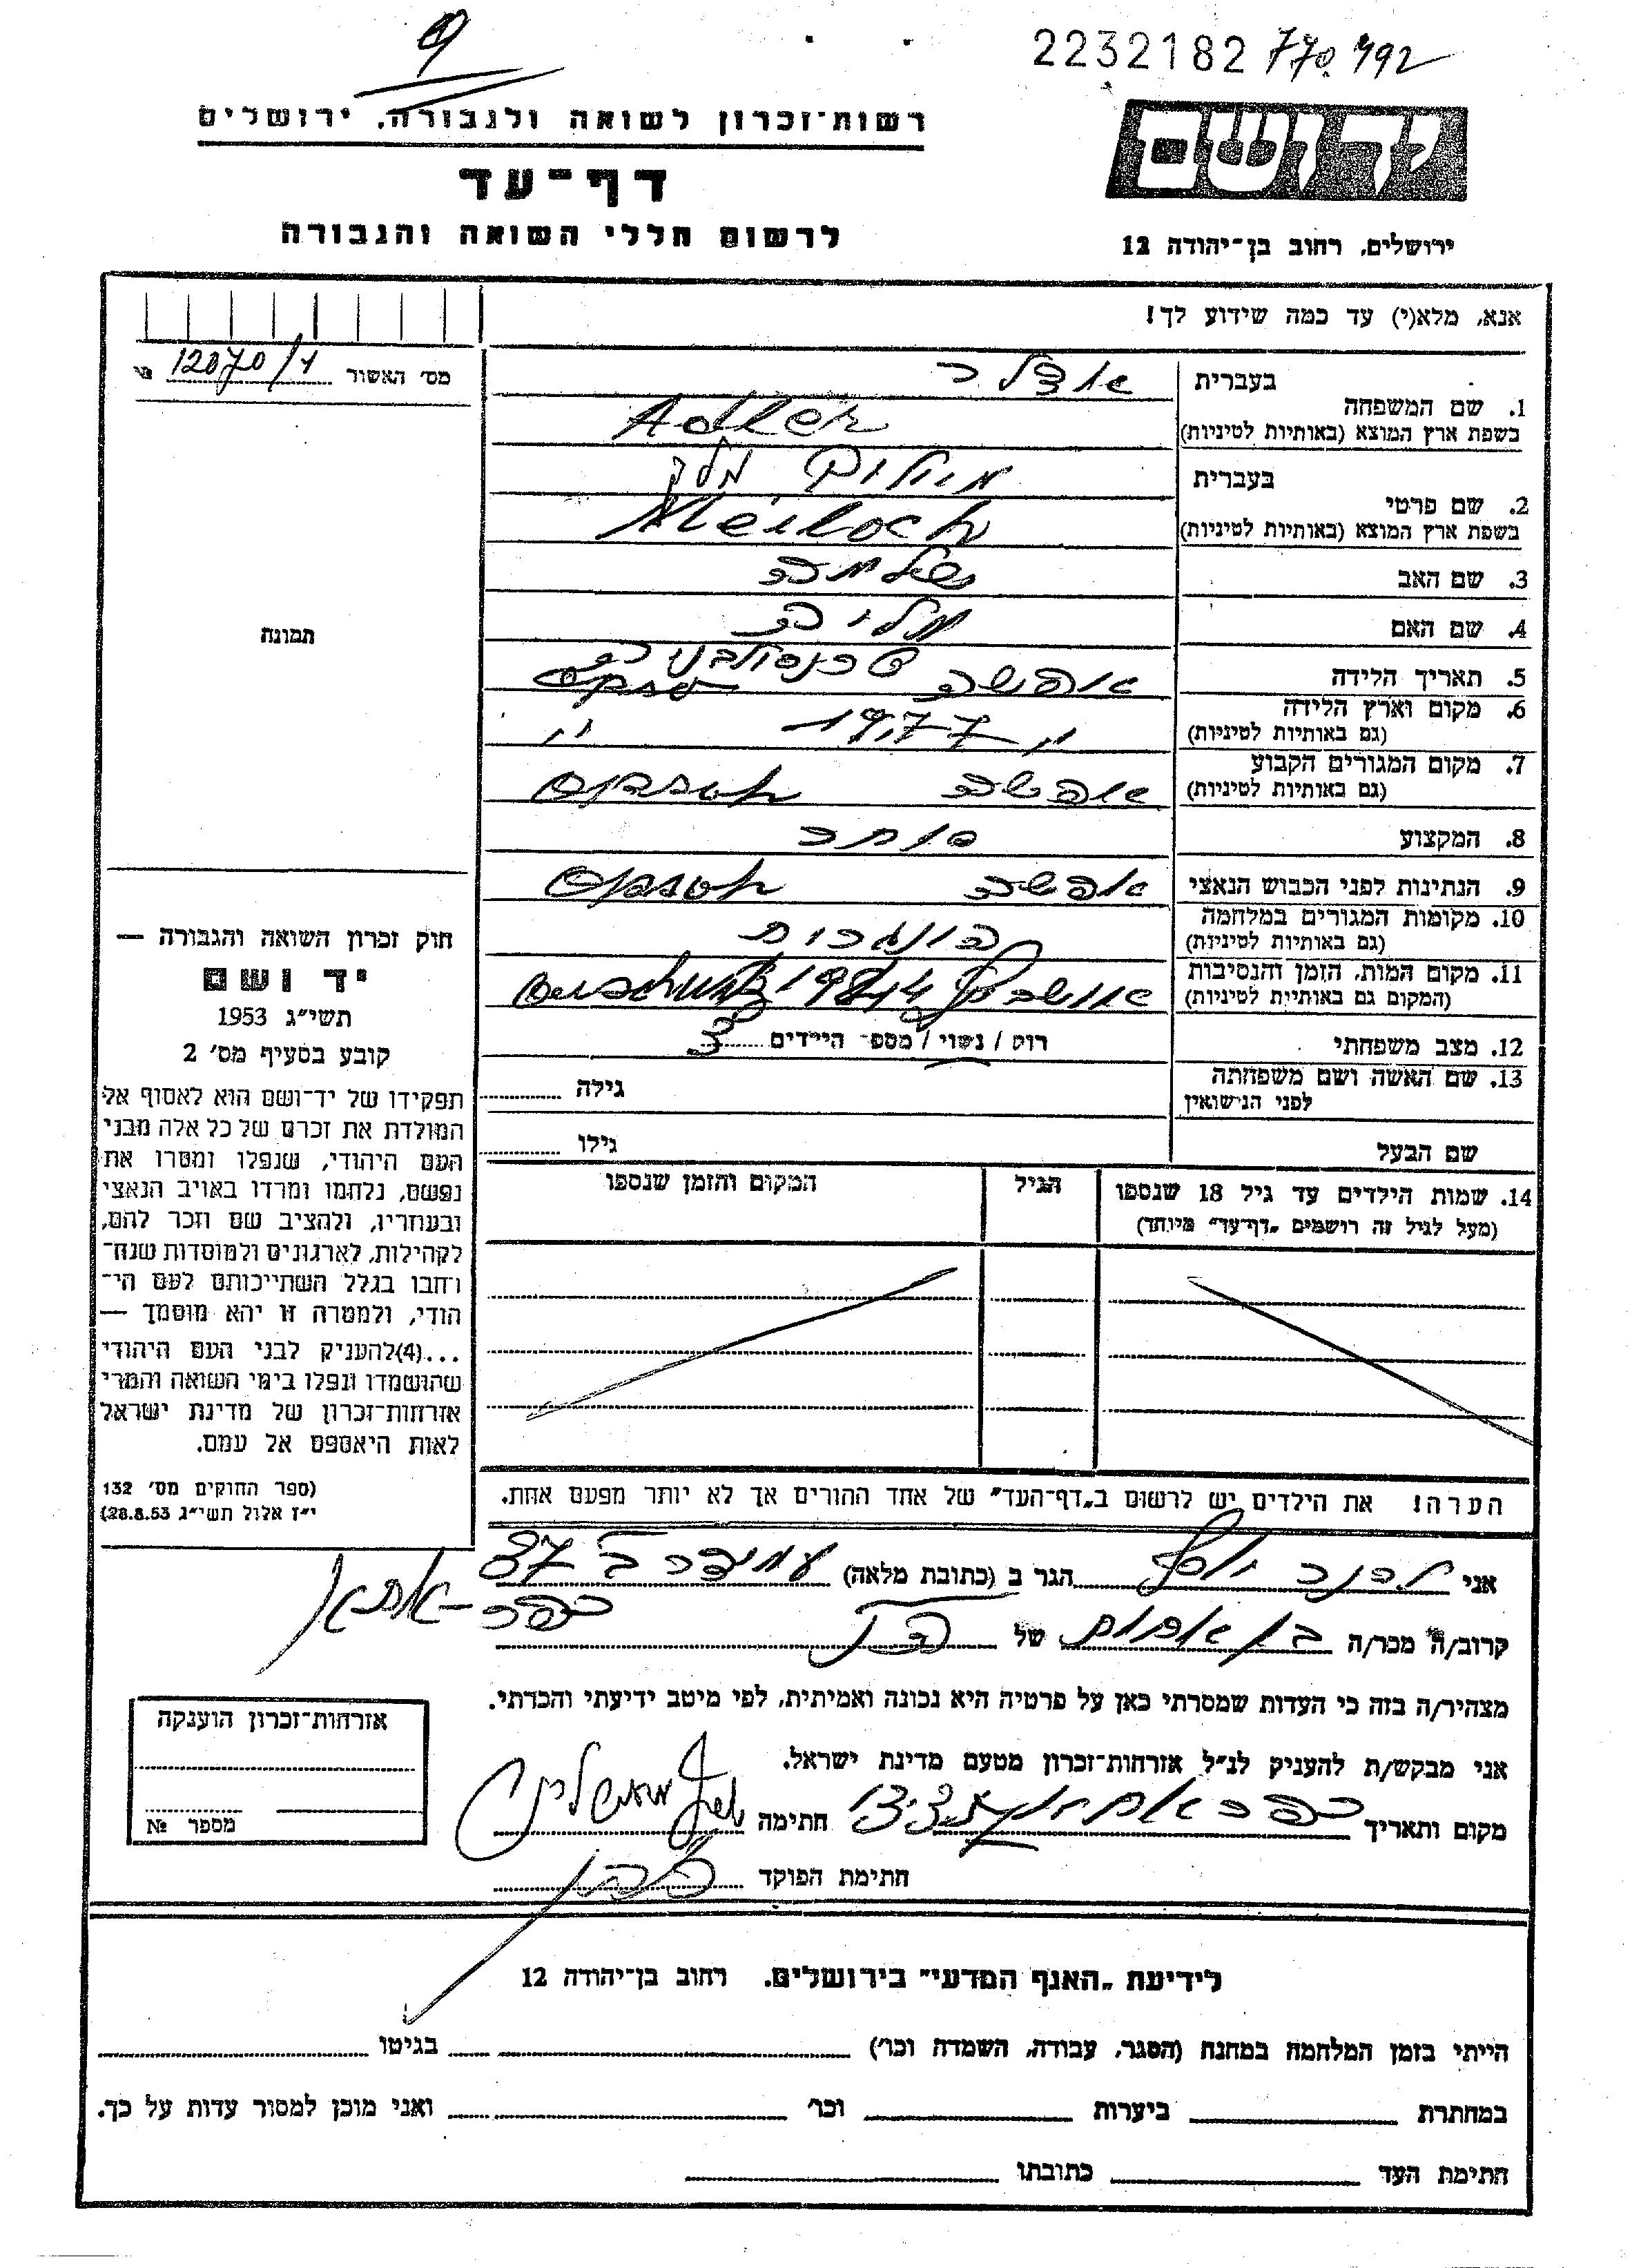 9
2232182 770.492
רשות־זכרון לשואה ולגבורה, ירושלים
יד ושם
דף־עד
לרשום חללי השואה והגבורה
ירושלים, רחוב בן־יהודה 12
אנא, מלא(י) עד כמה שידוע לך!
מס׳ האשור 12870/1 №
תמונה
בעברית אדלר
1. שם המשפחה
בשפת ארץ המוצא (באותיות לטיניות) Adler
בעברית מלך
2. שם פרטי
בשפת ארץ המוצא (באותיות לטיניות) Meiloch
3. שם האב שלמה
4. שם האם מליה
5. תאריך הלידה
6. מקום וארץ הלידה
(גם באותיות לטיניות)
7. מקום המגורים הקבוע
(גם באותיות לטיניות)
8. המקצוע סוחר
9. הנתינות לפני הכבוש הנאצי
10. מקומות המגורים במלחמה
(גם באותיות לטיניות)
11. מקום המות, הזמן והנסיבות
(המקום גם באותיות לטיניות)
12. מצב משפחתי רוק / נשוי / מספ׳ הילדים 3
13. שם האשה ושם משפחתה
לפני הנישואין גילה
שם הבעל גילו
14. שמות הילדים עד גיל 18 שנספו הגיל המקום והזמן שנספו
(מעל לגיל זה רושמים „דף־עד״ מיוחד)
הערה! את הילדים יש לרשום ב„דף־העד״ של אחד ההורים אך לא יותר מפעם אחת.
חוק זכרון השואה והגבורה —
יד ושם
תשי״ג 1953
קובע בסעיף מס׳ 2
תפקידו של יד־ושם הוא לאסוף אל
המולדת את זכרם של כל אלה מבני
העם היהודי, שנפלו ומסרו את
נפשם, נלחמו ומרדו באויב הנאצי
ובעוזריו, ולהציב שם וזכר להם,
לקהילות, לארגונים ולמוסדות שנח־
רבו בגלל השתייכותם לעם הי־
הודי, ולמטרה זו יהא מוסמך —
...(4)להעניק לבני העם היהודי
שהושמדו ונפלו בימי השואה והמרי
אזרחות־זכרון של מדינת ישראל
לאות היאספם אל עמם.
(ספר החוקים מס׳ 132
י״ז אלול תשי״ג 28.8.53)
אני יוסף הגר ב (כתובת מלאה) 37
כפר־אתא
קרוב/ה מכר/ה בן אחות של
מצהיר/ה בזה כי העדות שמסרתי כאן על פרטיה היא נכונה ואמיתית, לפי מיטב ידיעתי והכרתי.
אני מבקש/ת להעניק לנ״ל אזרחות־זכרון מטעם מדינת ישראל.
מקום ותאריך כפר אתא חתימה
חתימת הפוקד
אזרחות־זכרון הוענקה
מספר №
לידיעת „האגף המדעי״ בירושלים, רחוב בן־יהודה 12
הייתי בזמן המלחמה במחנה (הסגר, עבודה, השמדה וכו׳) בגיטו
במחתרת ביערות וכו׳ ואני מוכן למסור עדות על כך.
חתימת העד כתובתו